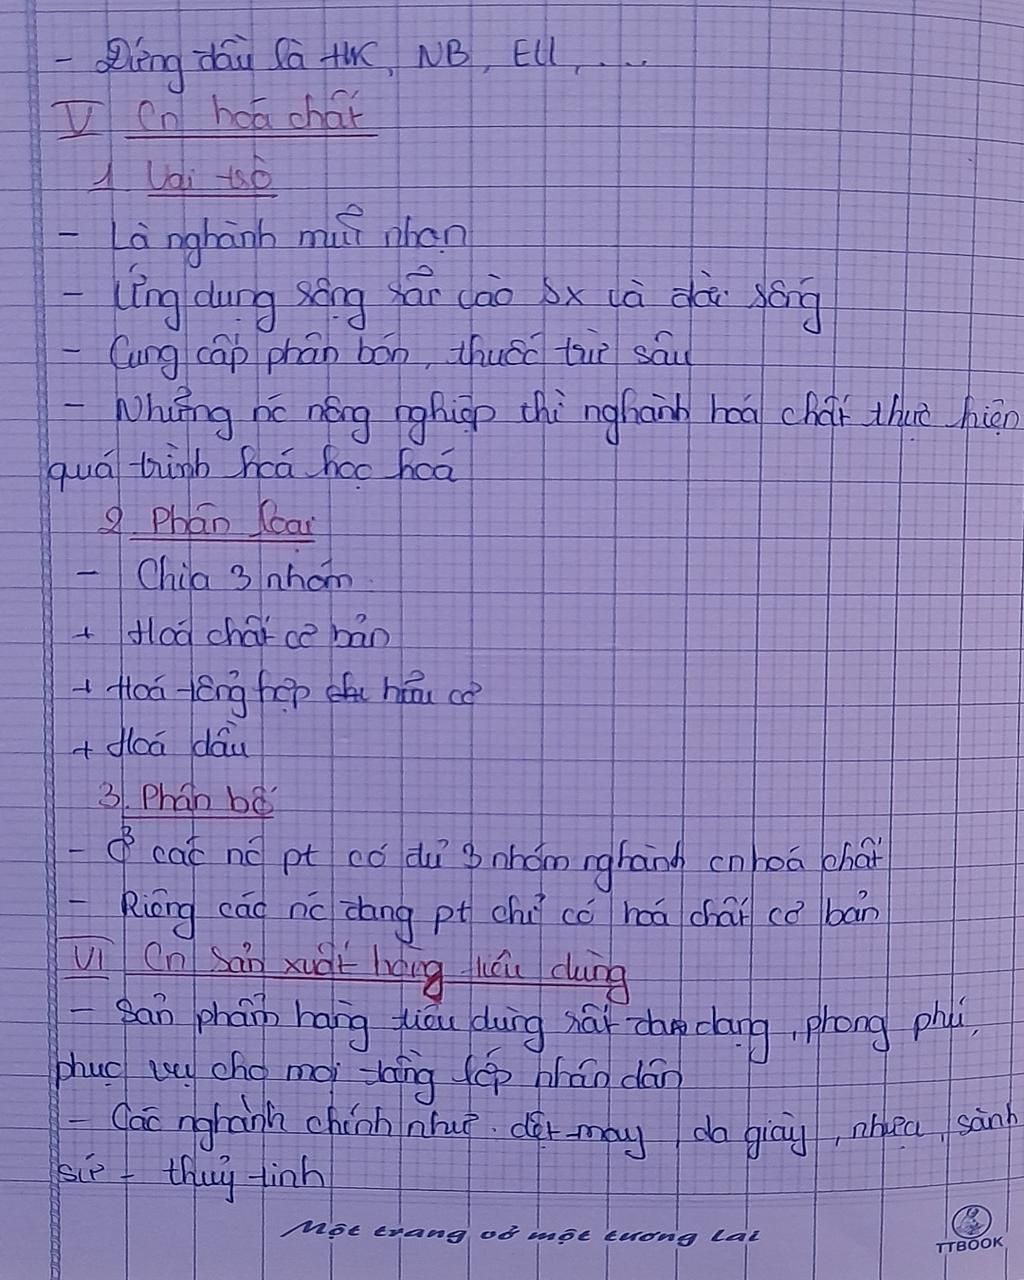 - Đứng đầu là HK, NB, EU, ...
V Cn hoá chất
1 Vai trò
- Là nghành mũi nhọn
- Ứng dụng rộng rãi vào sx và đời sống
- Cung cấp phân bón, thuốc trừ sâu
- Những nc nông nghiệp thì nghành hoá chất thực hiện
quá trình hoá học hoá
2. Phân loại
- Chia 3 nhóm
+ Hoá chất cơ bản
+ Hoá tổng hợp hữu cơ
+ Hoá dầu
3. Phân bố
- Ở các nc pt có đủ 3 nhóm nghành cn hoá chất
- Riêng các nc đang pt chỉ có hoá chất cơ bản
VI Cn sản xuất hàng tiêu dùng
- Sản phẩm hàng tiêu dùng rất đa dạng, phong phú,
phục vụ cho mọi tầng lớp nhân dân
- Các nghành chính như: dệt-may, da giày, nhựa, sành
sứ - thuỷ tinh
Một trang vở một tương lai
TTBOOK